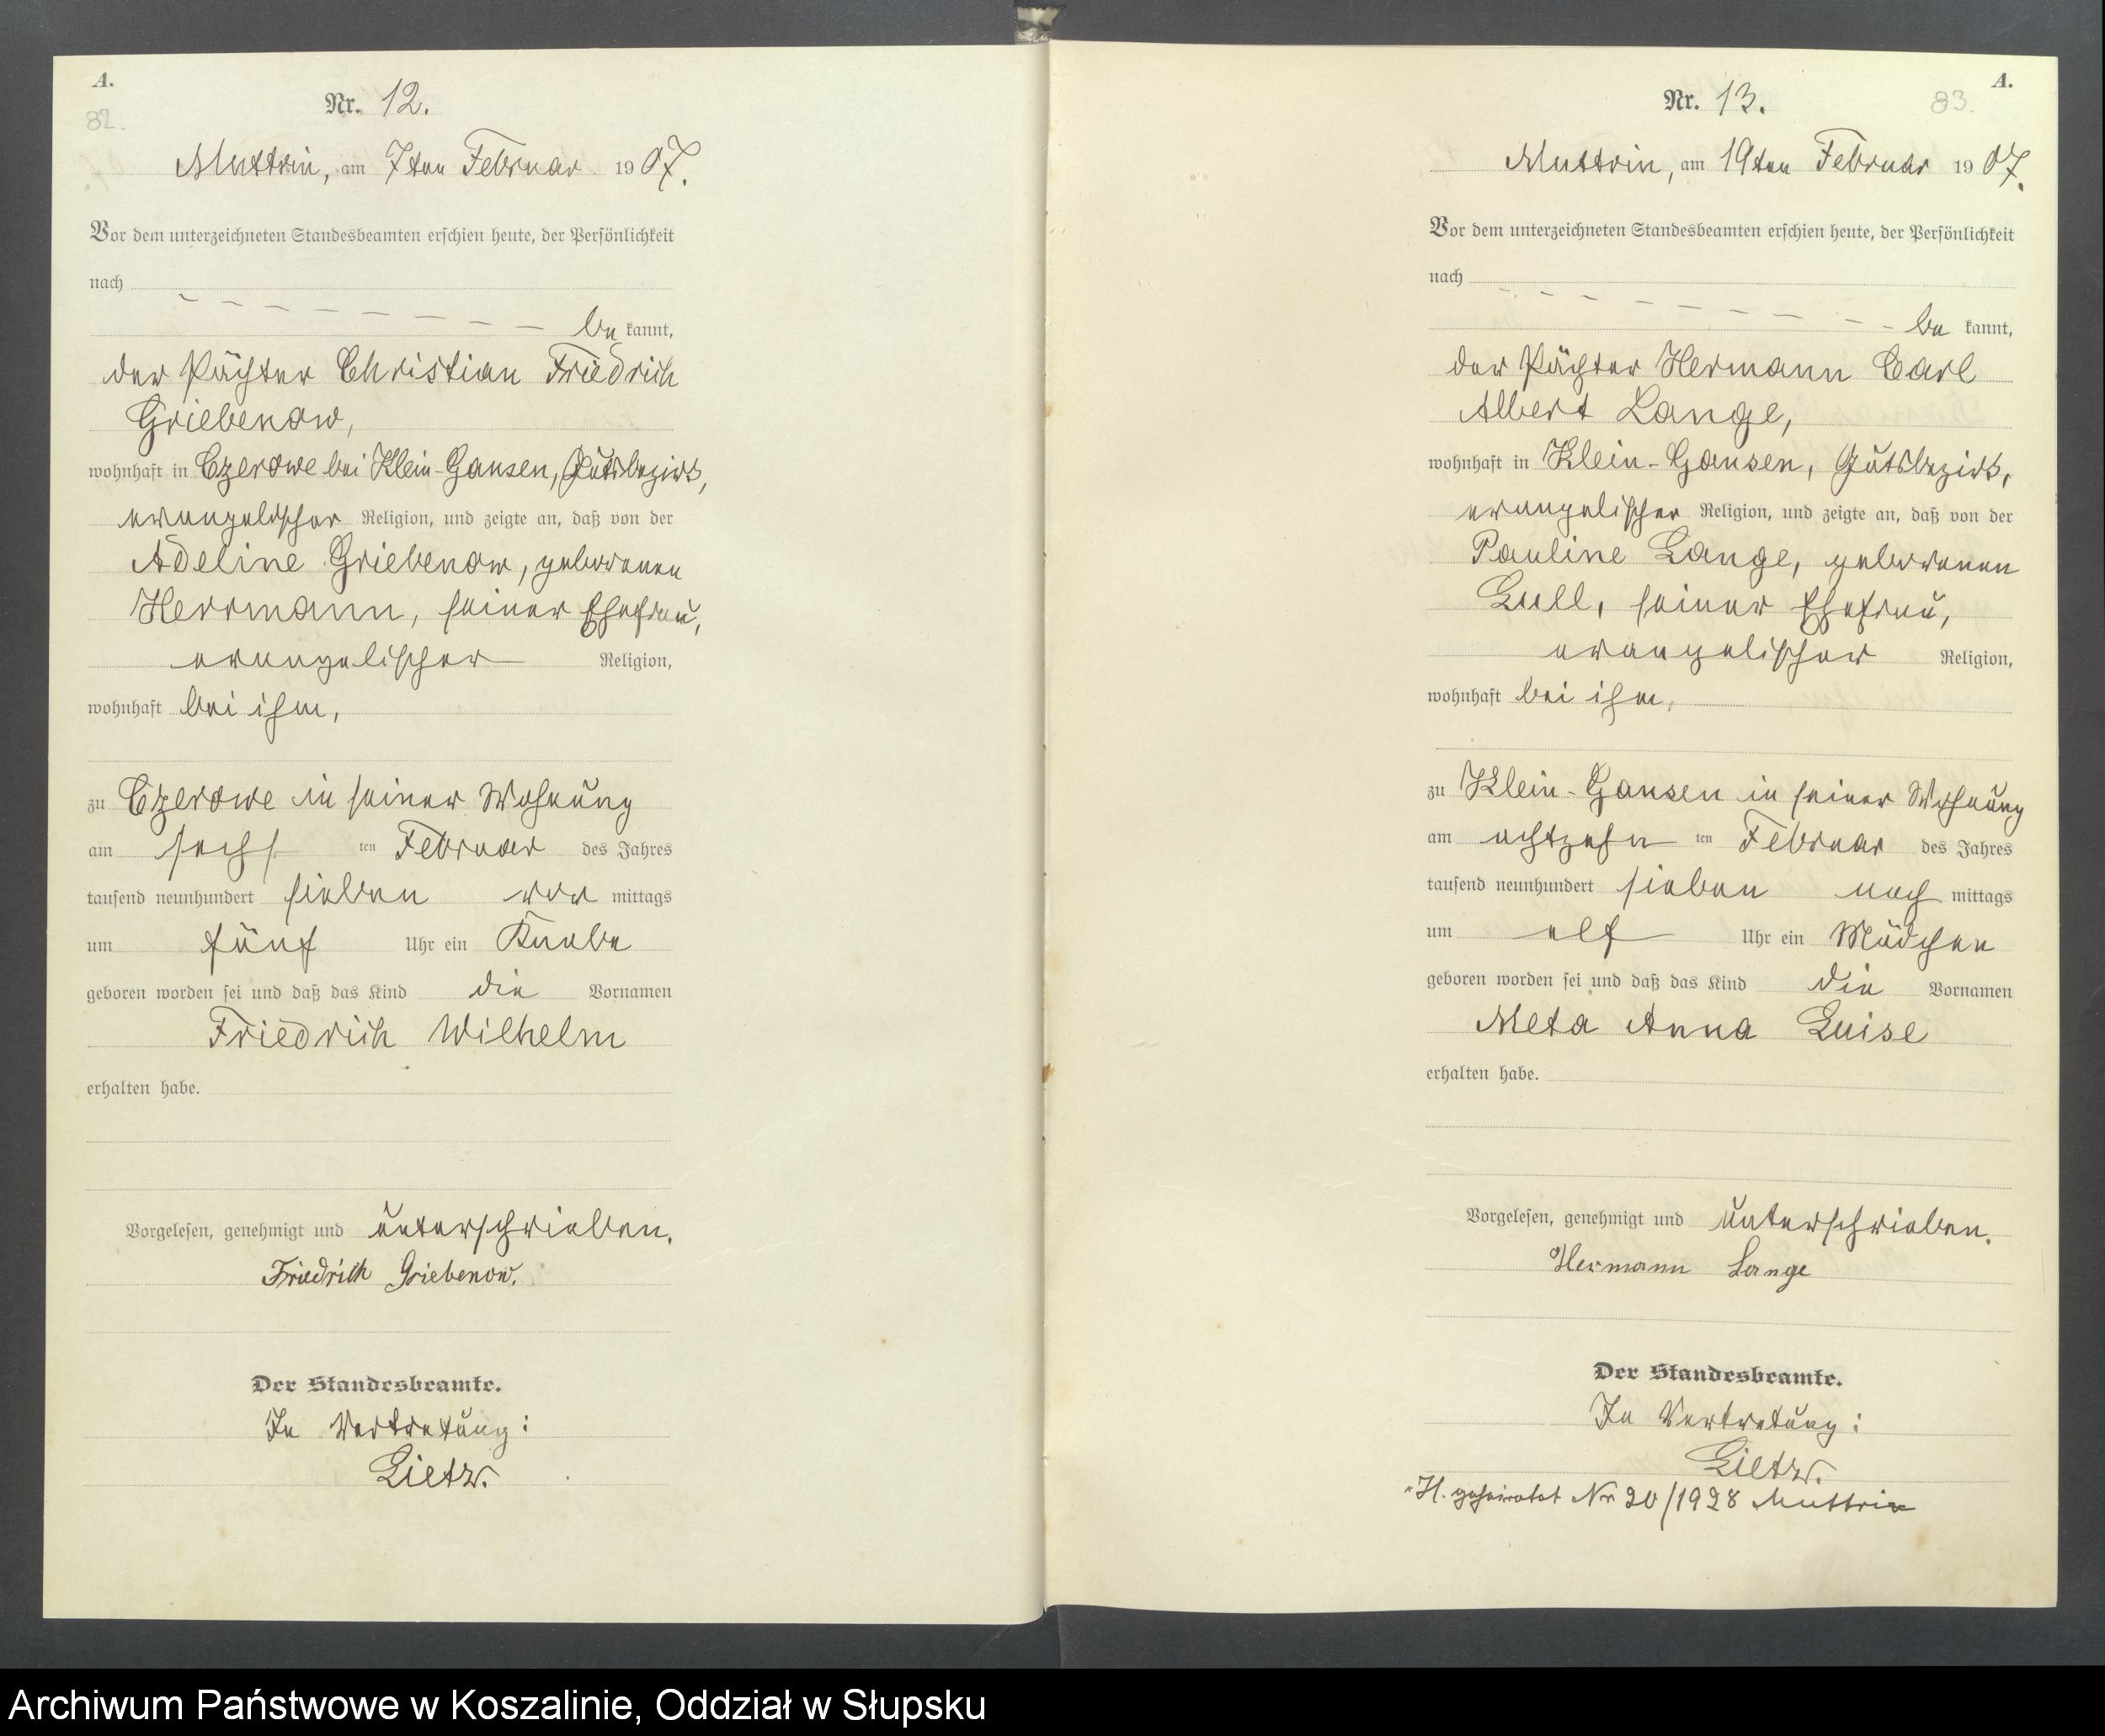 A.
82.
Nr. 12.
Muttrin, am 7ten Februar 1907.
Vor dem unterzeichneten Standesbeamten erschien heute, der Persönlichkeit
nach
be kannt,
der Pächter Christian Friedrich
Griebenow,
wohnhaft in Czerowe bei Klein-Gansen, Gutsbezirk,
evangelischer Religion, und zeigte an, daß von der
Adeline Griebenow, geborenen
Herrmann, seiner Ehefrau,
evangelischer Religion,
wohnhaft bei ihm,
zu Czerowe in seiner Wohnung
am sechs ten Februar des Jahres
tausend neunhundert sieben vor mittags
um fünf Uhr ein Knabe
geboren worden sei und daß das Kind die Vornamen
Friedrich Wilhelm
erhalten habe.
Vorgelesen, genehmigt und unterschrieben.
Friedrich Griebenow.
Der Standesbeamte.
In Vertretung:
Lietz.
A.
83.
Nr. 13.
Muttrin, am 19ten Februar 1907.
Vor dem unterzeichneten Standesbeamten erschien heute, der Persönlichkeit
nach
be kannt,
der Pächter Hermann Carl
Albert Lange,
wohnhaft in Klein-Gansen, Gutsbezirk,
evangelischer Religion, und zeigte an, daß von der
Pauline Lange, geborenen
Gull, seiner Ehefrau,
evangelischer Religion,
wohnhaft bei ihm,
zu Klein-Gansen in seiner Wohnung
am achtzehn ten Februar des Jahres
tausend neunhundert sieben nach mittags
um elf Uhr ein Mädchen
geboren worden sei und daß das Kind die Vornamen
Meta Anna Luise
erhalten habe.
Vorgelesen, genehmigt und unterschrieben.
Hermann Lange
Der Standesbeamte.
In Vertretung:
Lietz.
H. geheiratet Nr 20/1928 Muttrin
Archiwum Państwowe w Koszalinie, Oddział w Słupsku